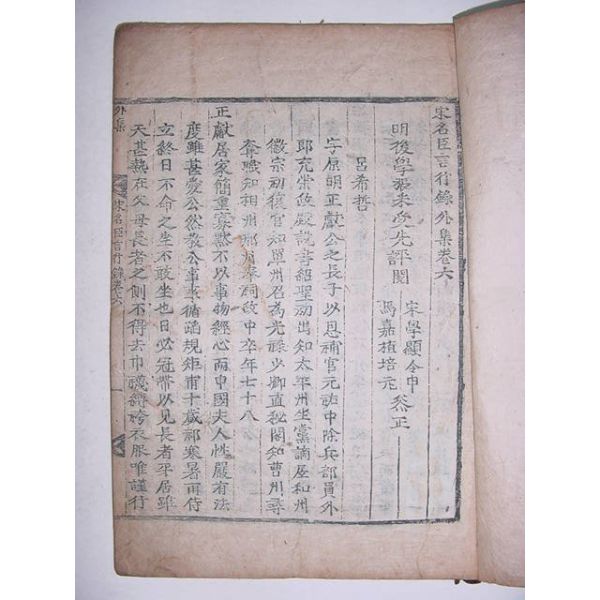 宋名臣言行錄外集卷六
明後學張采受先評閱
宋學顯令申
馬嘉植培元 叅正
呂希哲
字原明正獻公之長子以恩補官元祐中除兵部員外
郎充崇政殿說書紹聖初出知太平州坐黨謫居和州
徽宗初復官知單州召為光祿少卿直秘閣知曹州尋
奪職知相州邢州奉祠政中卒年七十八
正獻居家簡重寡默不以事物經心而申國夫人性嚴有法
度雖甚愛公然教公事事循蹈規矩甫十歲祁寒暑雨侍
立終日不命之坐不敢坐也日必冠帶以見長者平居雖
天甚熱在父母長者之側不得去巾襪縛袴衣服唯謹行
外集
宋名臣言行錄卷六